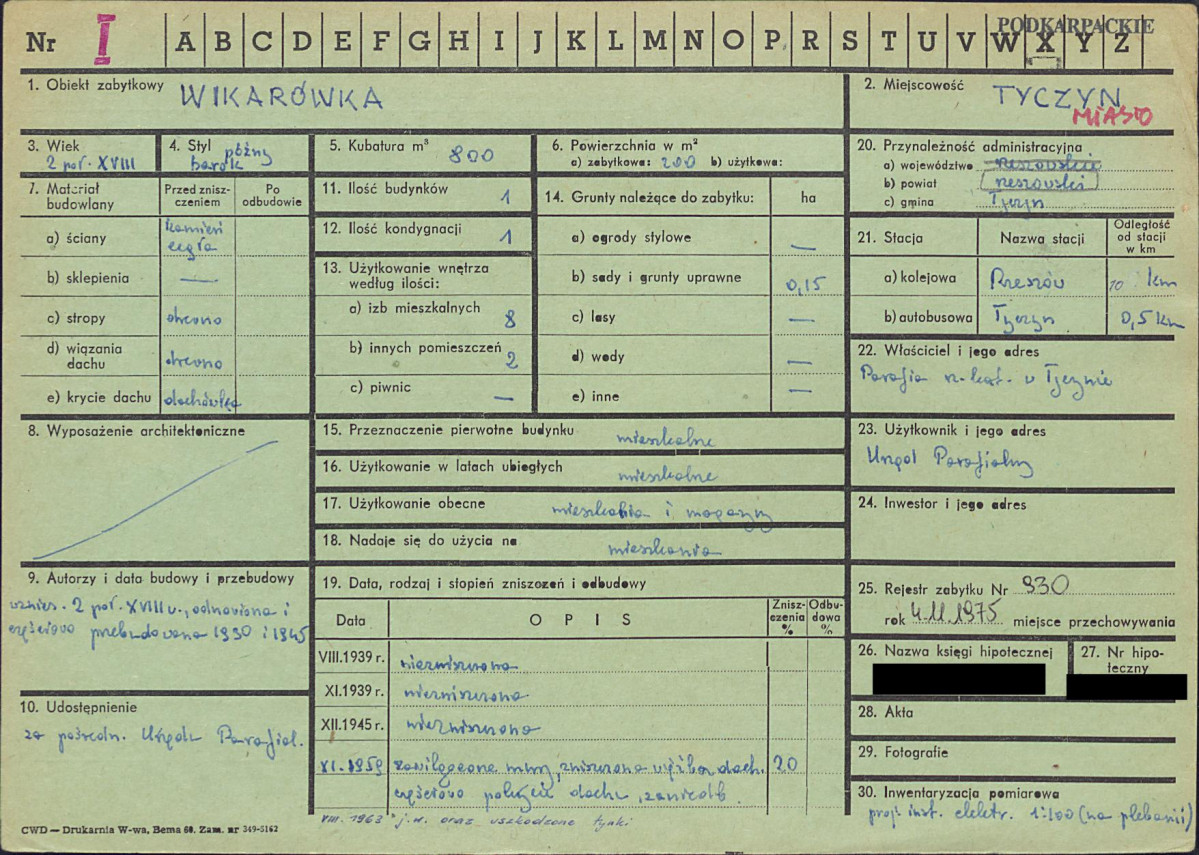 PODKARPACKIE
Nr I A B C D E F G H I J K L M N O P R S T U V W X Y Z
1. Obiekt zabytkowy WIKARÓWKA
2. Miejscowość TYCZYN
MIASTO
3. Wiek
2 poł. XVIII
4. Styl późny
barok
5. Kubatura m³ 800
6. Powierzchnia w m²
a) zabytkowa: 200 b) użytkowa:
20. Przynależność administracyjna
a) województwo rzeszowskie
b) powiat rzeszowski
c) gmina Tyczyn
7. Materiał budowlany
Przed znisz-
czeniem
Po
odbudowie
a) ściany kamień
cegła
b) sklepienia —
c) stropy drewno
d) wiązania
dachu drewno
e) krycie dachu dachówka
11. Ilość budynków 1
12. Ilość kondygnacji 1
13. Użytkowanie wnętrza
według ilości:
a) izb mieszkalnych 8
b) innych pomieszczeń 2
c) piwnic —
14. Grunty należące do zabytku: ha
a) ogrody stylowe —
b) sady i grunty uprawne 0,15
c) lasy —
d) wody —
e) inne —
21. Stacja Nazwa stacji
Odległość
od stacji
w km
a) kolejowa Rzeszów 10 km
b) autobusowa Tyczyn 0,5 km
22. Właściciel i jego adres
Parafia rz-kat. w Tyczynie
8. Wyposażenie architektoniczne
15. Przeznaczenie pierwotne budynku mieszkalne
16. Użytkowanie w latach ubiegłych mieszkalne
17. Użytkowanie obecne mieszkania i magazyny
18. Nadaje się do użycia na mieszkania
23. Użytkownik i jego adres
Urząd Parafialny
24. Inwestor i jego adres
9. Autorzy i data budowy i przebudowy
wznies. 2 poł. XVIII w., odnowiona i
częściowo przebudowana 1930 i 1945
10. Udostępnienie
za pośredn. Urzędu Parafial.
19. Data, rodzaj i stopień zniszczeń i odbudowy
Data OPIS
Znisz-
czenia
%
Odbu-
dowa
%
VIII.1939 r. niezniszczona
XI.1939 r. niezniszczona
XII.1945 r. niezniszczona
XI.1959 zawilgocone mury, zniszczona więźba dach. 20
częściowo pokrycie dachu, zaniedb.
VIII. 1963 j.w. oraz uszkodzone tynki
25. Rejestr zabytku Nr 930
rok 4.11.1975 miejsce przechowywania
26. Nazwa księgi hipotecznej
27. Nr hipo-
teczny
28. Akta
29. Fotografie
30. Inwentaryzacja pomiarowa
proj. inst. elektr. 1:100 (na plebanii)
CWD — Drukarnia W-wa, Bema 60. Zam. nr 349-5162